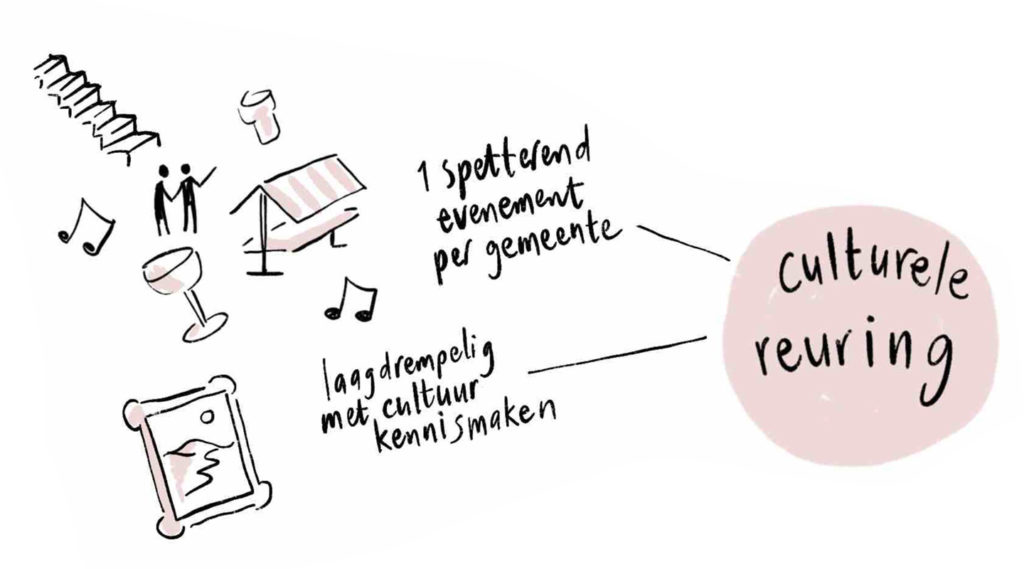 1 spetterend
evenement
per gemeente
laagdrempelig
met cultuur
kennismaken
culturele
reuring